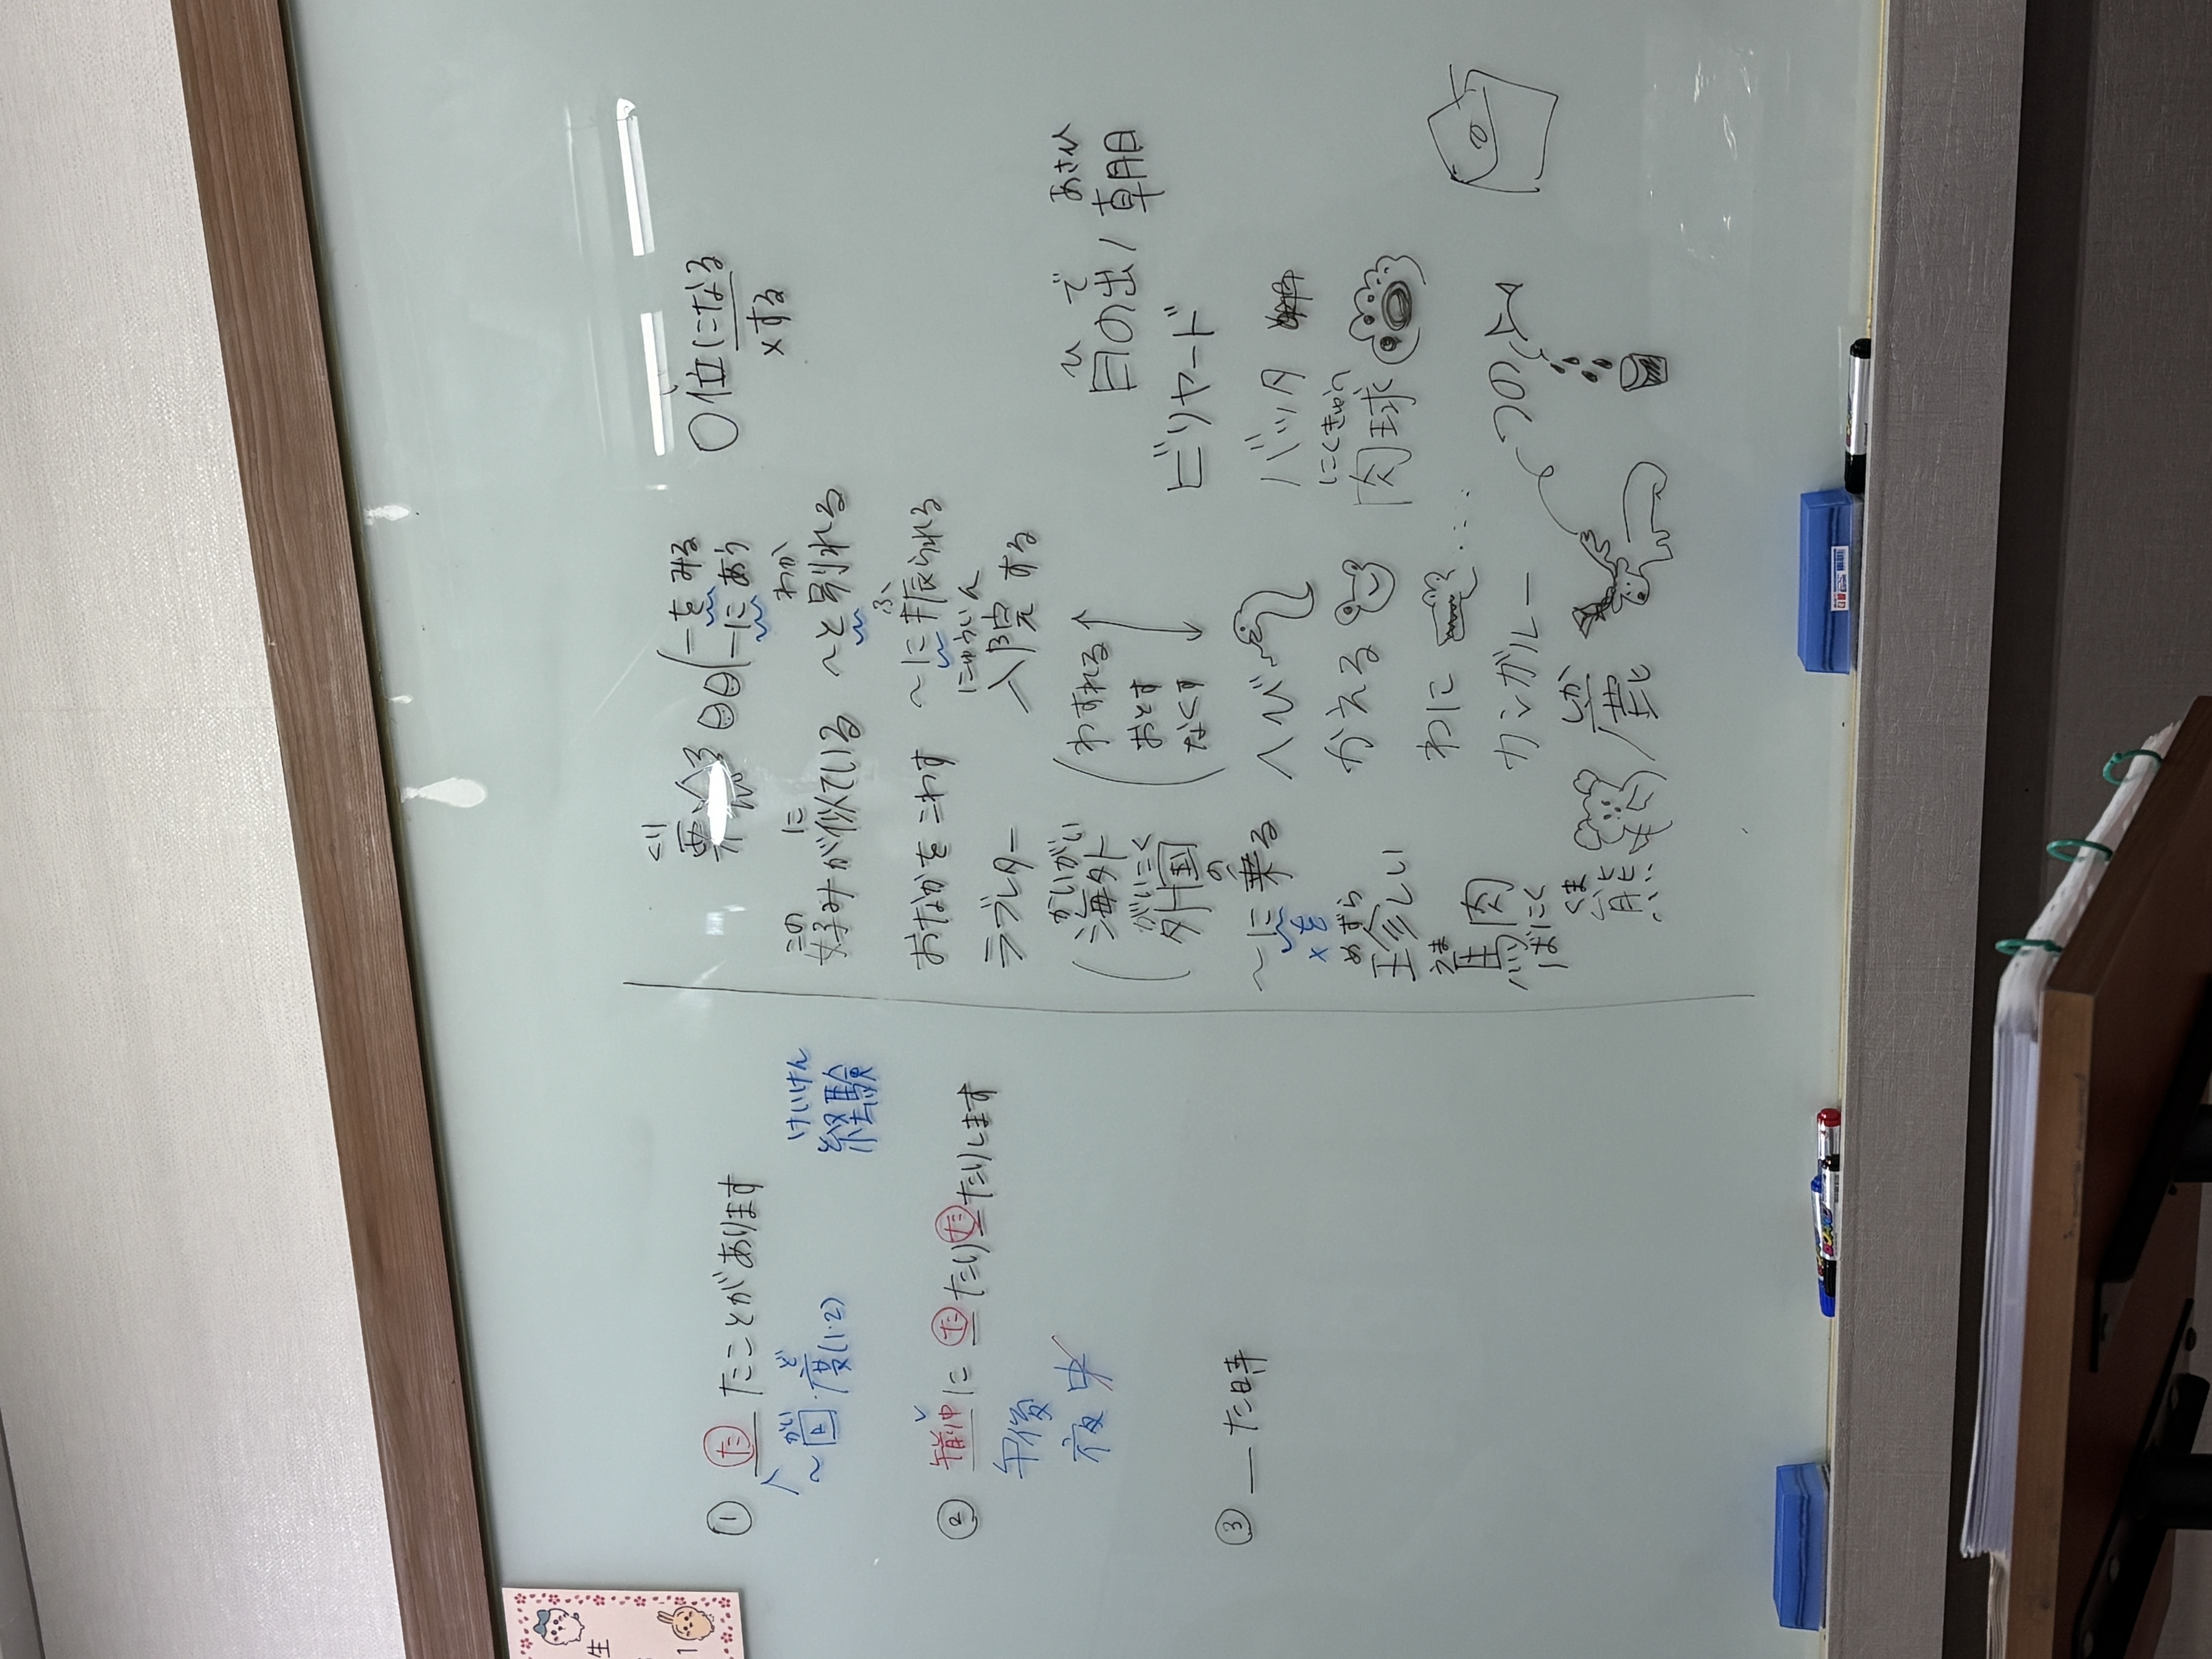 ① た たことがあります
〜回 度(1・2)
がい ど
けいけん
経験
② 午前中に た たり た たりします
午後
夜 中
③ __た時
ぐり
〜をみる
〜にあう
〇位になる
×する
この に
好みが似ている
わか
〜と別れる
おなかをこわす
ふ
〜に振られる
ラブレター
にゅういん
入院する
かいがい
海外
がいこく
外国
わすれる
おとす
なくす
ひ で あさひ
日の出 / 朝日
の
〜に乗る
×を
ヘび
ビリヤード
めずら
珍しい
かえる
バッタ
うま
馬肉
ばにく
わに
にくきゅう
肉球
カンガルー
くま
熊
しか
鹿
生
1